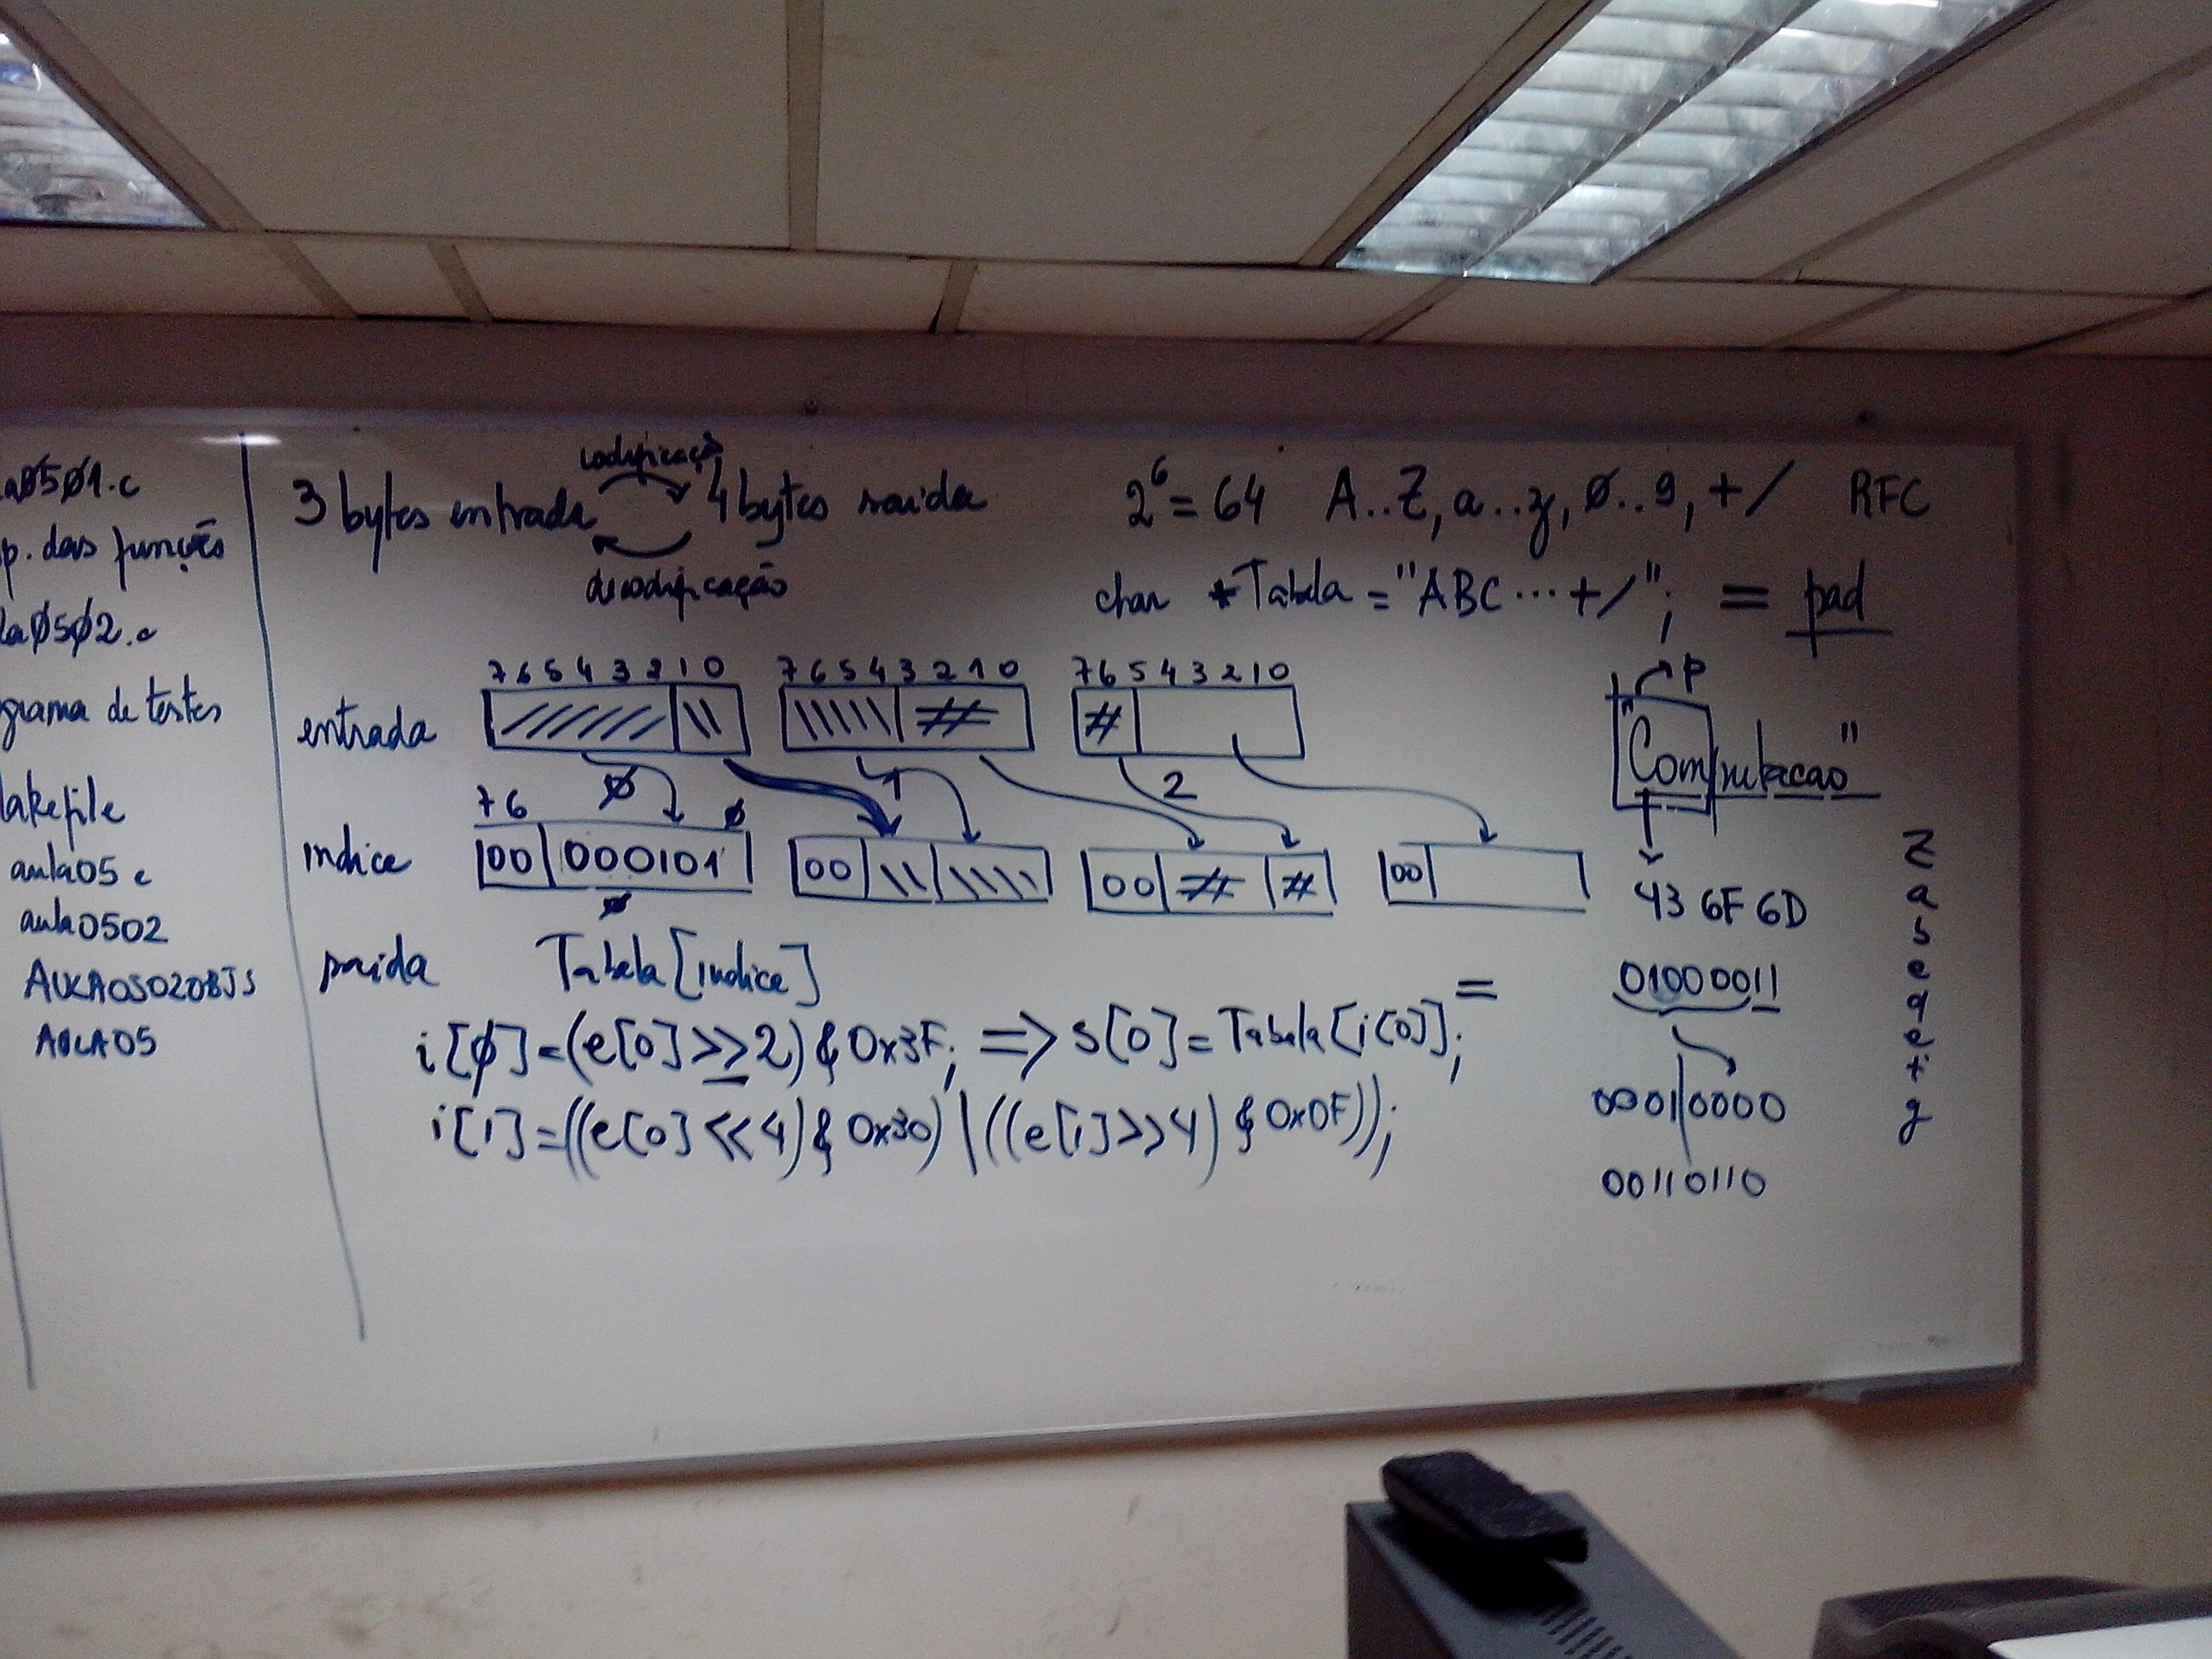 a0501.c
p. das funções
la0502.c
grama de testes
akefile
aula05 e
aula0502
AULA0502OBJS
AULA05
codificação
3 bytes entrada 4 bytes saida
decodificação
2^6 = 64 A..Z, a..z, 0..9, +/ RFC
char *Tabela = "ABC...+/"; = pad
7 6 5 4 3 2 1 0 7 6 5 4 3 2 1 0 7 6 5 4 3 2 1 0
entrada
0 1 2
7 6 0
indice 00 000101 00 00 00
0
saida Tabela[indice]
=
i[0]=(e[0]>>2)&0x3F; => s[0]=Tabela[i[0]];
i[1]=((e[0]<<4)&0x30)|((e[1]>>4)&0x0F));
p
"Computacao"
43 6F 6D
01000011
00010000
00110110
Z
a
b
e
q
e
t
g